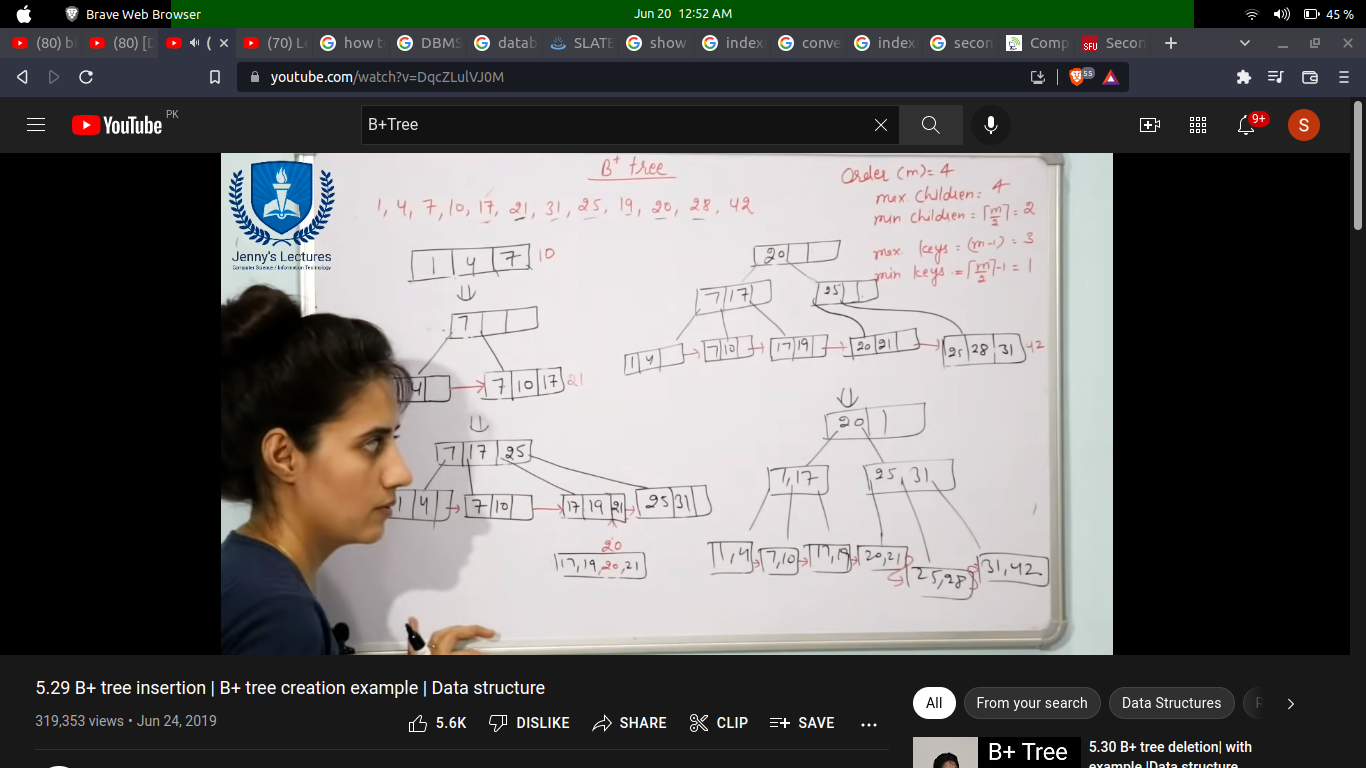 Brave Web Browser
Jun 20 12:52 AM
45 %
(80) b
(80) [D
(
(70) L
how t
DBMS
datab
SLATE
show
index
conve
index
secon
Comp
SFU
Secon
youtube.com/watch?v=DqcZLulVJ0M
55
YouTube
PK
B+Tree
9+
S
B+ tree
Order (m) = 4
max children = 4
min children = ⌈m/2⌉ = 2
max keys = (m-1) = 3
min keys = ⌈m/2⌉-1 = 1
1, 4, 7, 10, 17, 21, 31, 25, 19, 20, 28, 42
Jenny's Lectures
Computer Science / Information Technology
1 4 7 10
7
4
7 10 17 21
7 17 25
1 4
7 10
17 19 21
25 31
20
17, 19, 20, 21
20
7 17
25
1 4
7 10
17 19
20 21
25 28 31 42
20
7, 17
25, 31
1, 4
7, 10
17, 19
20, 21
25, 28
31, 42
5.29 B+ tree insertion | B+ tree creation example | Data structure
319,353 views • Jun 24, 2019
5.6K
DISLIKE
SHARE
CLIP
SAVE
All
From your search
Data Structures
B+ Tree
5.30 B+ tree deletion| with
example |Data structure